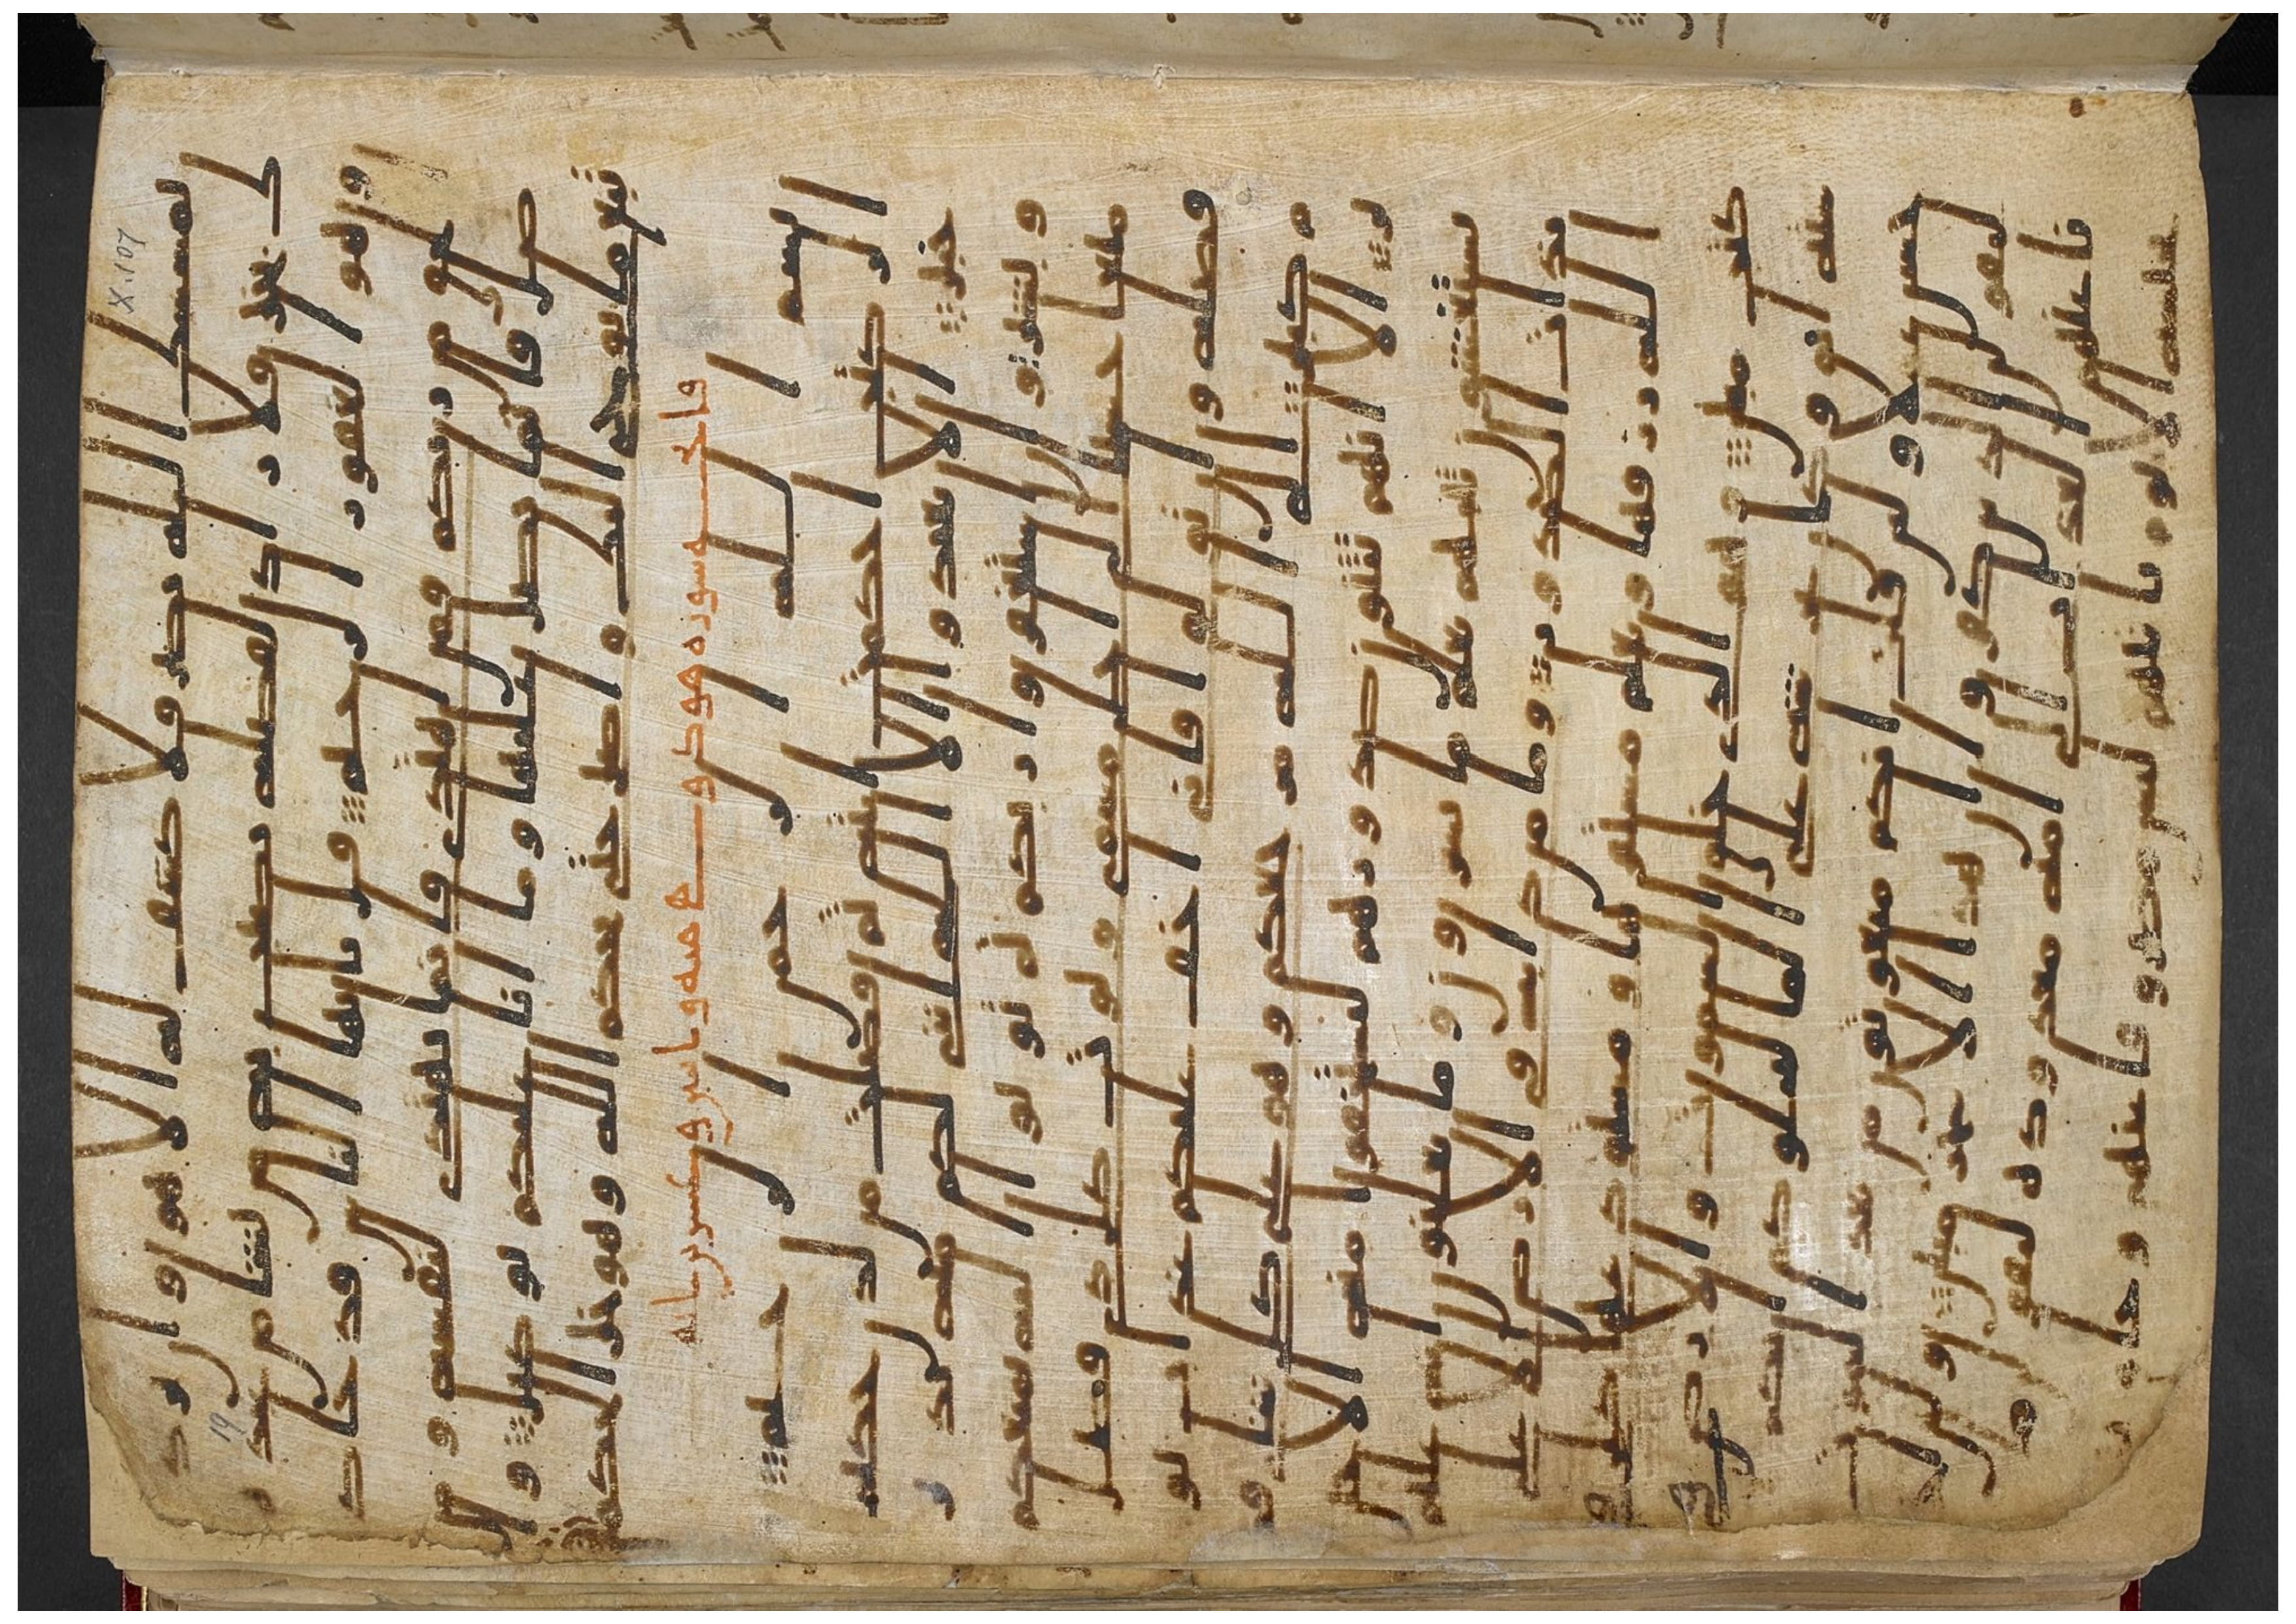 يمسسك الله بضر فلا كشف له الا هو وان يرد
ك بخير فلا راد لفضله يصيب به من يشا من عبد
ه وهو الغفور الرحيم قل يايها الناس قد جا
كم الحق من ربكم فمن اهتدى فانما يهتدي لنفسه و
من ضل فانما يضل عليها وما انا عليكم بوكيل وا
تبع ما يوحى اليك واصبر حتى يحكم الله وهو خير الحكمين
فاتحه سوره هود
بسم الله الرحمن الرحيم
الر كتب احكمت ايته ثم فصلت من لدن حكيم
خبير الا تعبدوا الا الله انني لكم منه نذير
وبشير وان استغفروا ربكم ثم توبوا اليه يمتعكم
متعا حسنا الى اجل مسمى ويوت كل ذي فضل
فضله وان تولوا فاني اخاف عليكم عذاب يو
م كبير الى الله مرجعكم وهو على كل شي ق
دير الا انهم يثنون صدورهم ليستخفوا منه الا حين
يستغشون ثيابهم يعلم ما يسرون وما يعلنون انه عليم
بذات الصدور وما من دابة في الارض الا على
الله رزقها ويعلم مستقرها ومستودعها كل في
كتب مبين وهو الذي خلق السموت والارض في
ستة ايام وكان عرشه على الما ليبلوكم ايكم
احسن عملا ولئن قلت انكم مبعوثون من بعد الموت
ليقولن الذين كفروا ان هذا الا سحر مبين ولئن
اخرنا عنهم العذاب الى امة معدودة ليقولن ما
يحبسه الا يوم ياتيهم ليس مصروفا عنهم وحاق
X.107
19